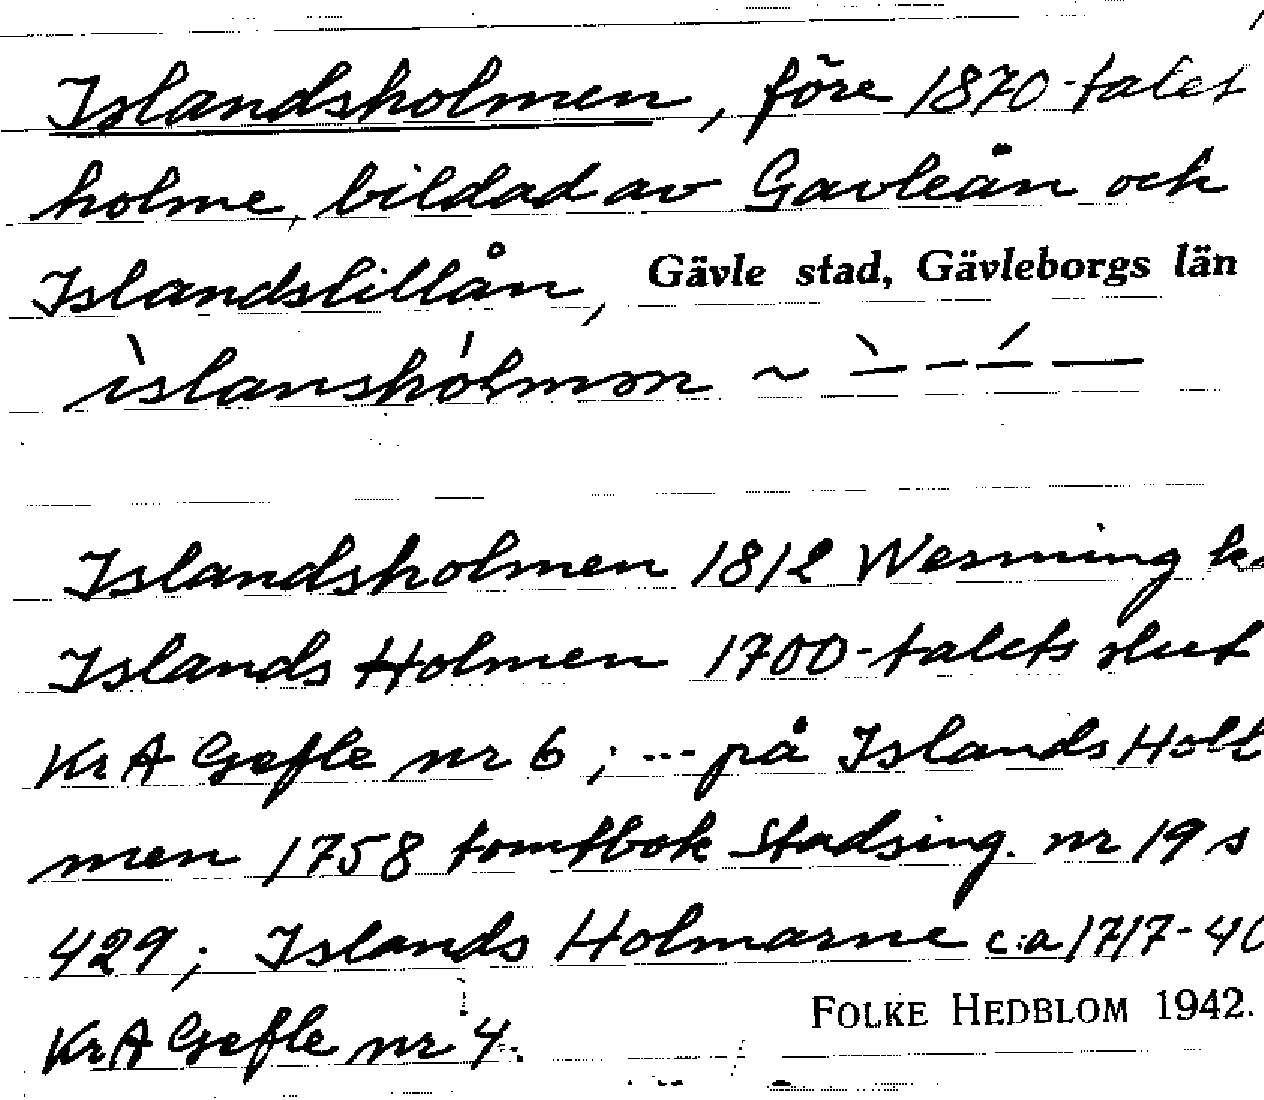 Islandsholmen, före 1870-talet
holme, bildad av Gavleån och
Islandslillån, Gävle stad, Gävleborgs län
ìslanshólmən ~ ̀– – ́– —
Islandsholmen 1812 Wenning ka
Islands Holmen 1700-talets slut
KrA Gefle nr 6; --- på Islands Holl
men 1758 tomtbok Stadsing. nr 19 s
429; Islands Holmarne c:a 1717-40
KrA Gefle nr 4. FOLKE HEDBLOM 1942.